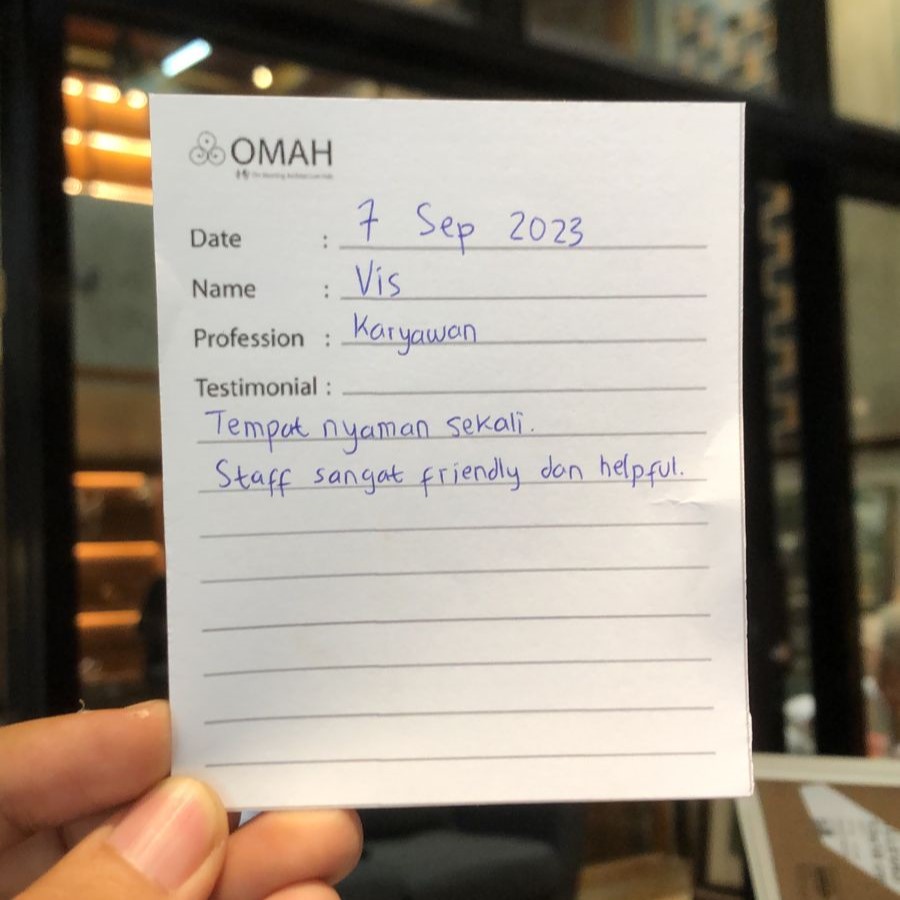 OMAH
Date : 7 Sep 2023
Name : Vis
Profession : Karyawan
Testimonial :
Tempat nyaman sekali.
Staff sangat friendly dan helpful.